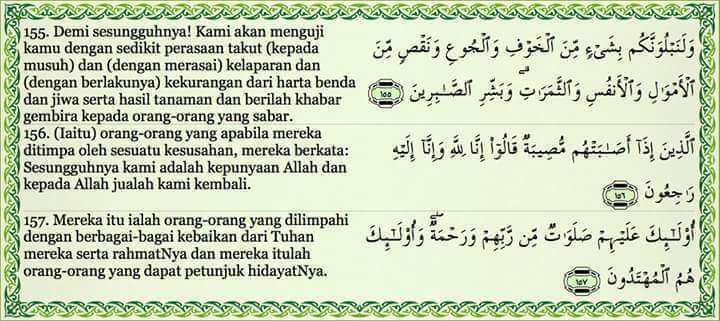 155. Demi sesungguhnya! Kami akan menguji
kamu dengan sedikit perasaan takut (kepada
musuh) dan (dengan merasai) kelaparan dan
(dengan berlakunya) kekurangan dari harta benda
dan jiwa serta hasil tanaman dan berilah khabar
gembira kepada orang-orang yang sabar.
وَلَنَبْلُوَنَّكُم بِشَىْءٍ مِّنَ ٱلْخَوْفِ وَٱلْجُوعِ وَنَقْصٍ مِّنَ
ٱلْأَمْوَٰلِ وَٱلْأَنفُسِ وَٱلثَّمَرَٰتِ ۗ وَبَشِّرِ ٱلصَّـٰبِرِينَ ١٥٥
156. (Iaitu) orang-orang yang apabila mereka
ditimpa oleh sesuatu kesusahan, mereka berkata:
Sesungguhnya kami adalah kepunyaan Allah dan
kepada Allah jualah kami kembali.
ٱلَّذِينَ إِذَآ أَصَـٰبَتْهُم مُّصِيبَةٌ قَالُوٓا۟ إِنَّا لِلَّهِ وَإِنَّآ إِلَيْهِ
رَٰجِعُونَ ١٥٦
157. Mereka itu ialah orang-orang yang dilimpahi
dengan berbagai-bagai kebaikan dari Tuhan
mereka serta rahmatNya dan mereka itulah
orang-orang yang dapat petunjuk hidayatNya.
أُو۟لَـٰٓئِكَ عَلَيْهِمْ صَلَوَٰتٌ مِّن رَّبِّهِمْ وَرَحْمَةٌ ۖ وَأُو۟لَـٰٓئِكَ
هُمُ ٱلْمُهْتَدُونَ ١٥٧